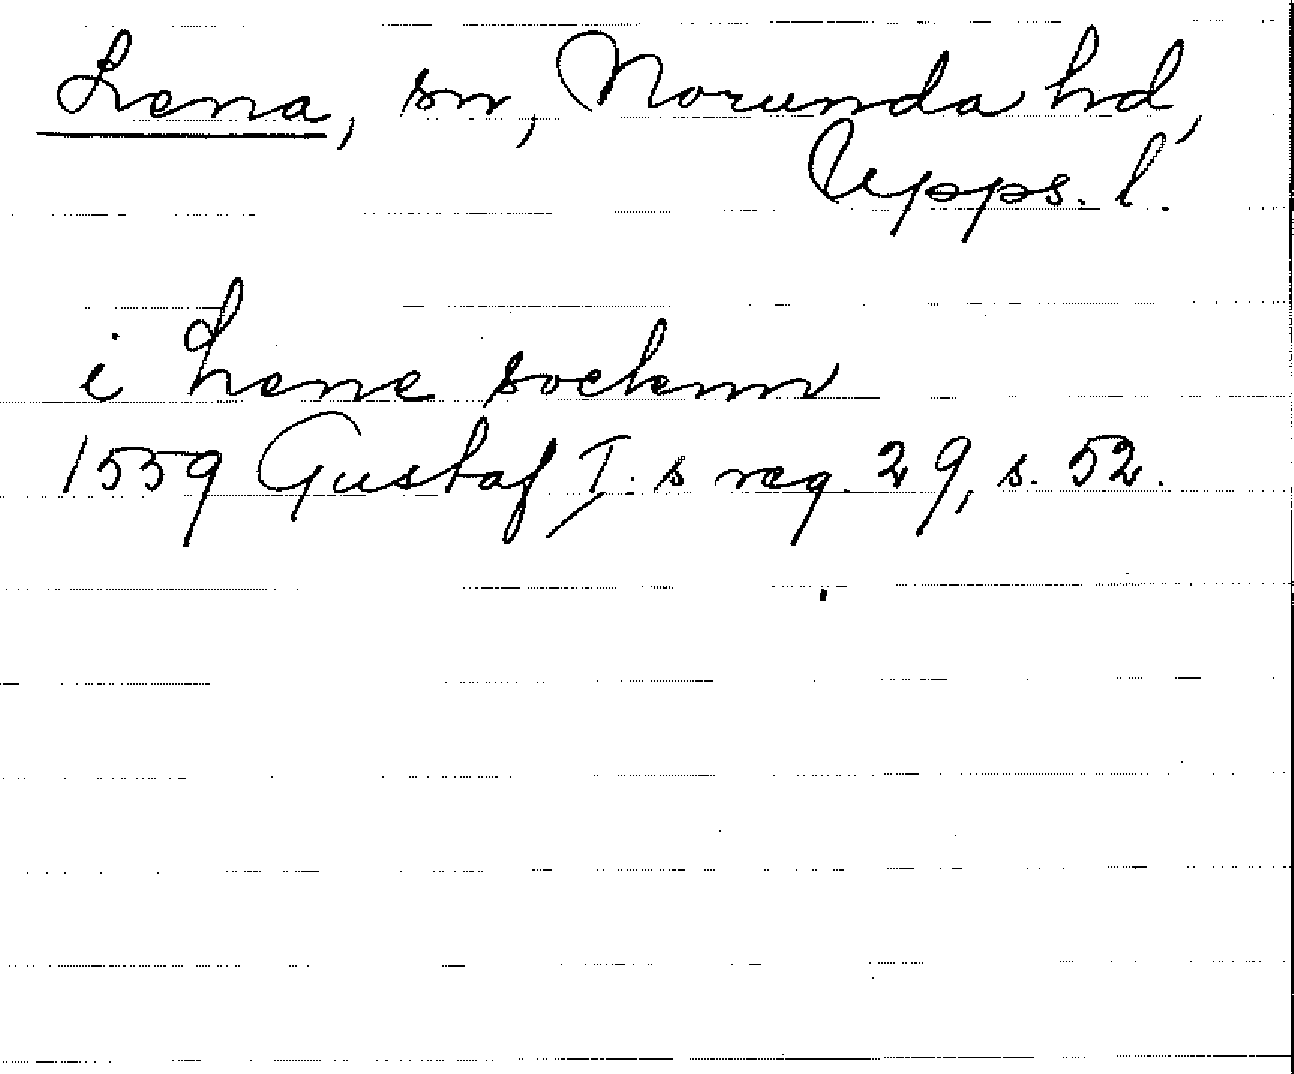 Lena, sn, Norunda hd,
Upps. l.
i Lene sockenn
1559 Gustaf I. s reg. 29, s. 52.